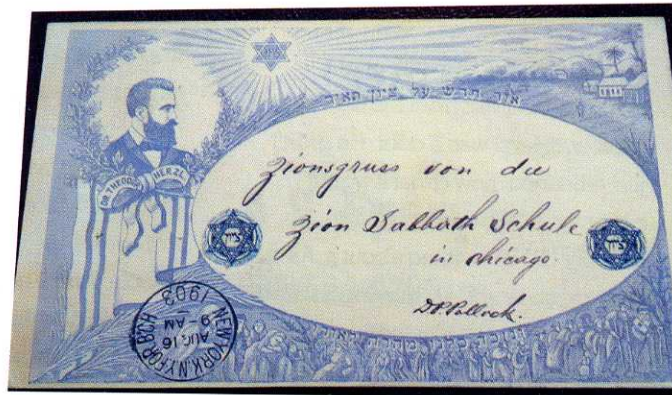 אור חדש על ציון תאיר
DR. THEODOR HERZL
Zionsgruss von die
Zion Sabbath Schule
in Chicago.
D. P. Pollock.
ציון
ציון
NEW YORK, N.Y. FOR. B'CH
AUG 16
9-AM
1903